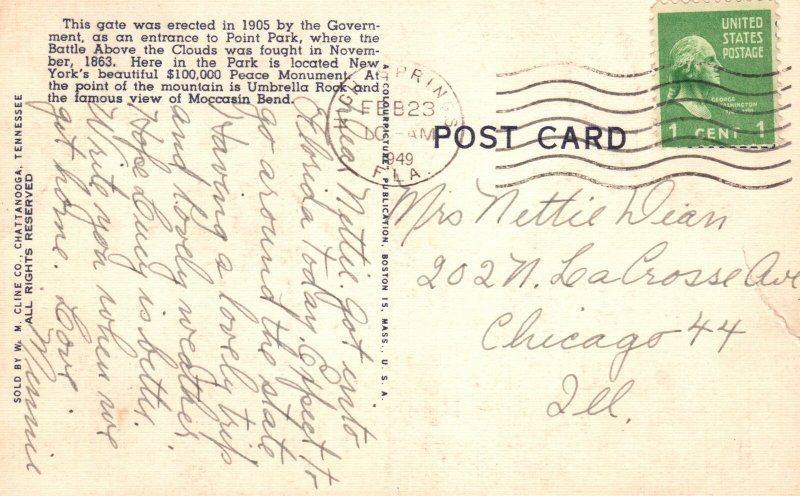 This gate was erected in 1905 by the Govern-
ment, as an entrance to Point Park, where the
Battle Above the Clouds was fought in Novem-
ber, 1863. Here in the Park is located New
York's beautiful $100,000 Peace Monument. At
the point of the mountain is Umbrella Rock and
the famous view of Moccasin Bend.
SOLD BY W. M. CLINE CO., CHATTANOOGA, TENNESSEE
ALL RIGHTS RESERVED
Nettie. Got into
Florida today. Expect to
go around the state
Having a lovely trip
and lovely weather.
Hope Lucy is better.
Write you when we
get home. Love
Minnie
A COLOURPICTURE PUBLICATION, BOSTON 15, MASS., U. S. A.
HIGH SPRINGS
FEB 23
10 - AM
1949
FLA.
POST CARD
UNITED
STATES
POSTAGE
GEORGE
WASHINGTON
1 CENT 1
Mrs Nettie Dean
202 N. LaCrosse Ave
Chicago 44
Ill.